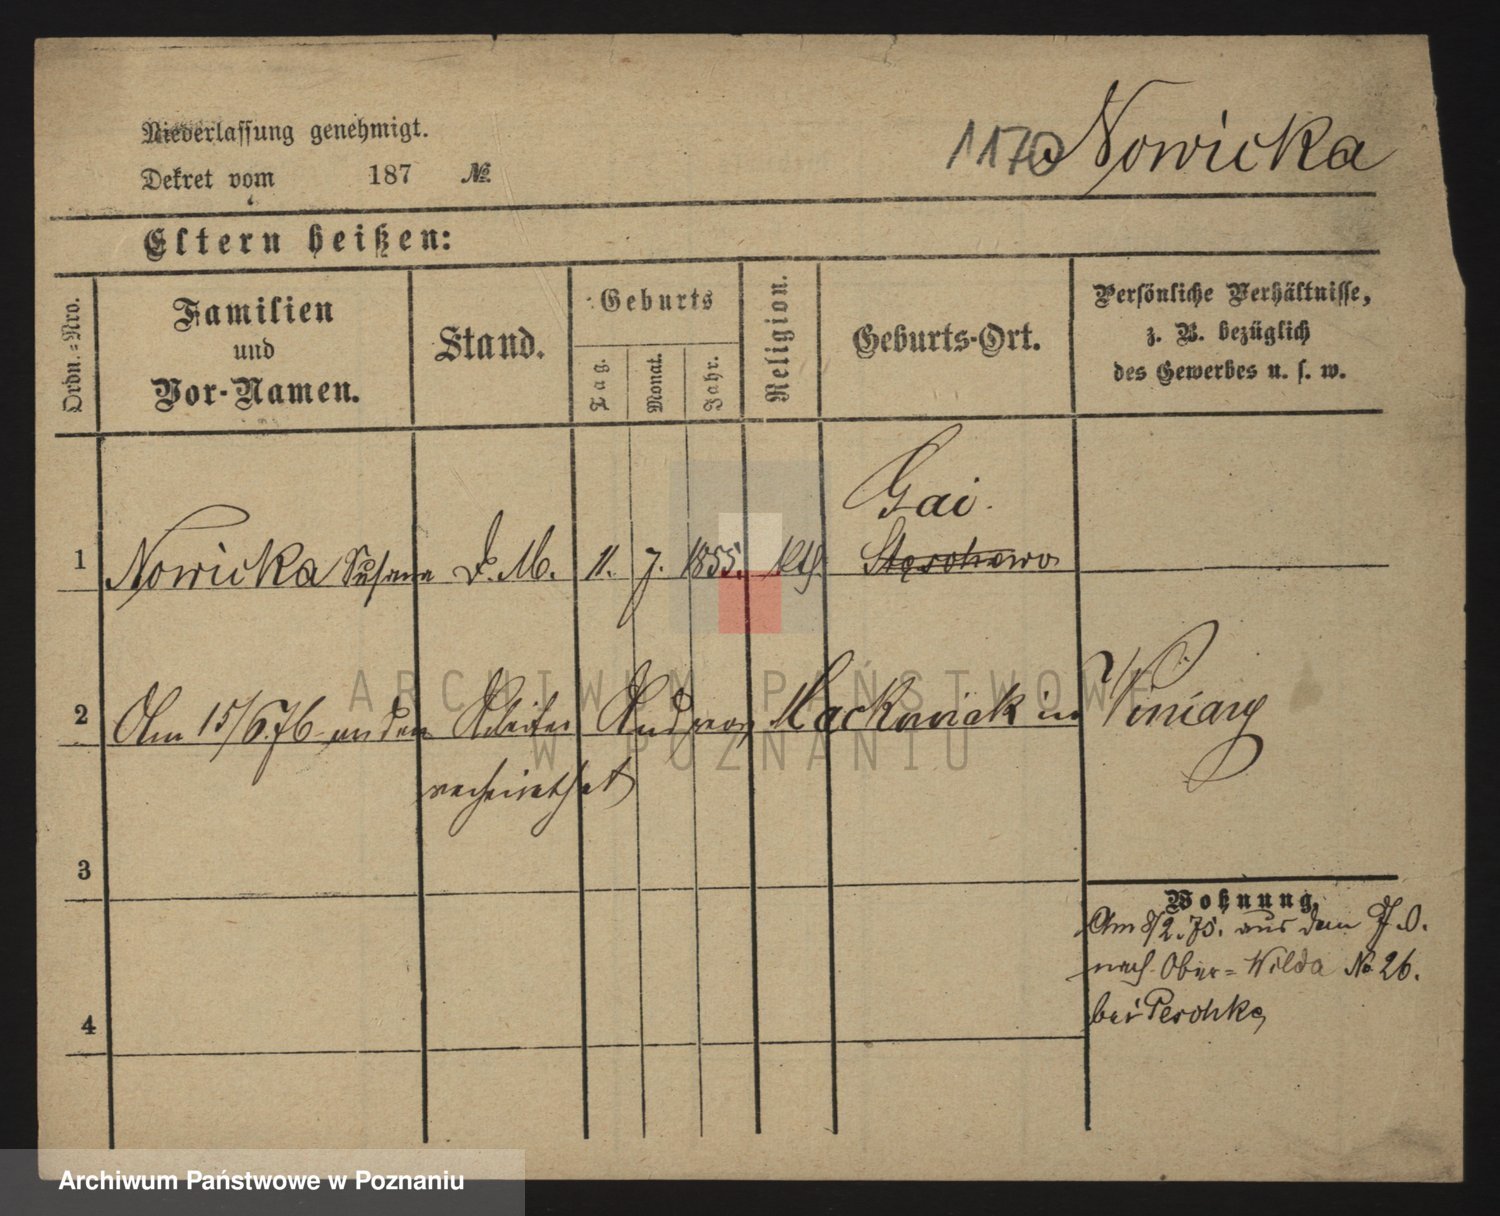 Niederlassung genehmigt.
Dekret vom 187 №
1170 Nowicka
Eltern heißen:
Ordn.-Nro.
Familien und Vor-Namen.
Stand.
Geburts
Tag.
Monat.
Jahr.
Religion.
Geburts-Ort.
Persönliche Verhältnisse,
z. B. bezüglich
des Gewerbes u. s. w.
Gai.
1 Nowicka Susanna D. M. 11. 7. 1855. kth.
2 Am 15/6.76 an den Arbeiter Andreas Mackowiak in Winiary
verheirathet
3
Wohnung.
Am 8/2.75. aus dem J. O.
nach Ober-Wilda No 26.
bei Peschke
4
ARCHIWUM PAŃSTWOWE
W POZNANIU
Archiwum Państwowe w Poznaniu